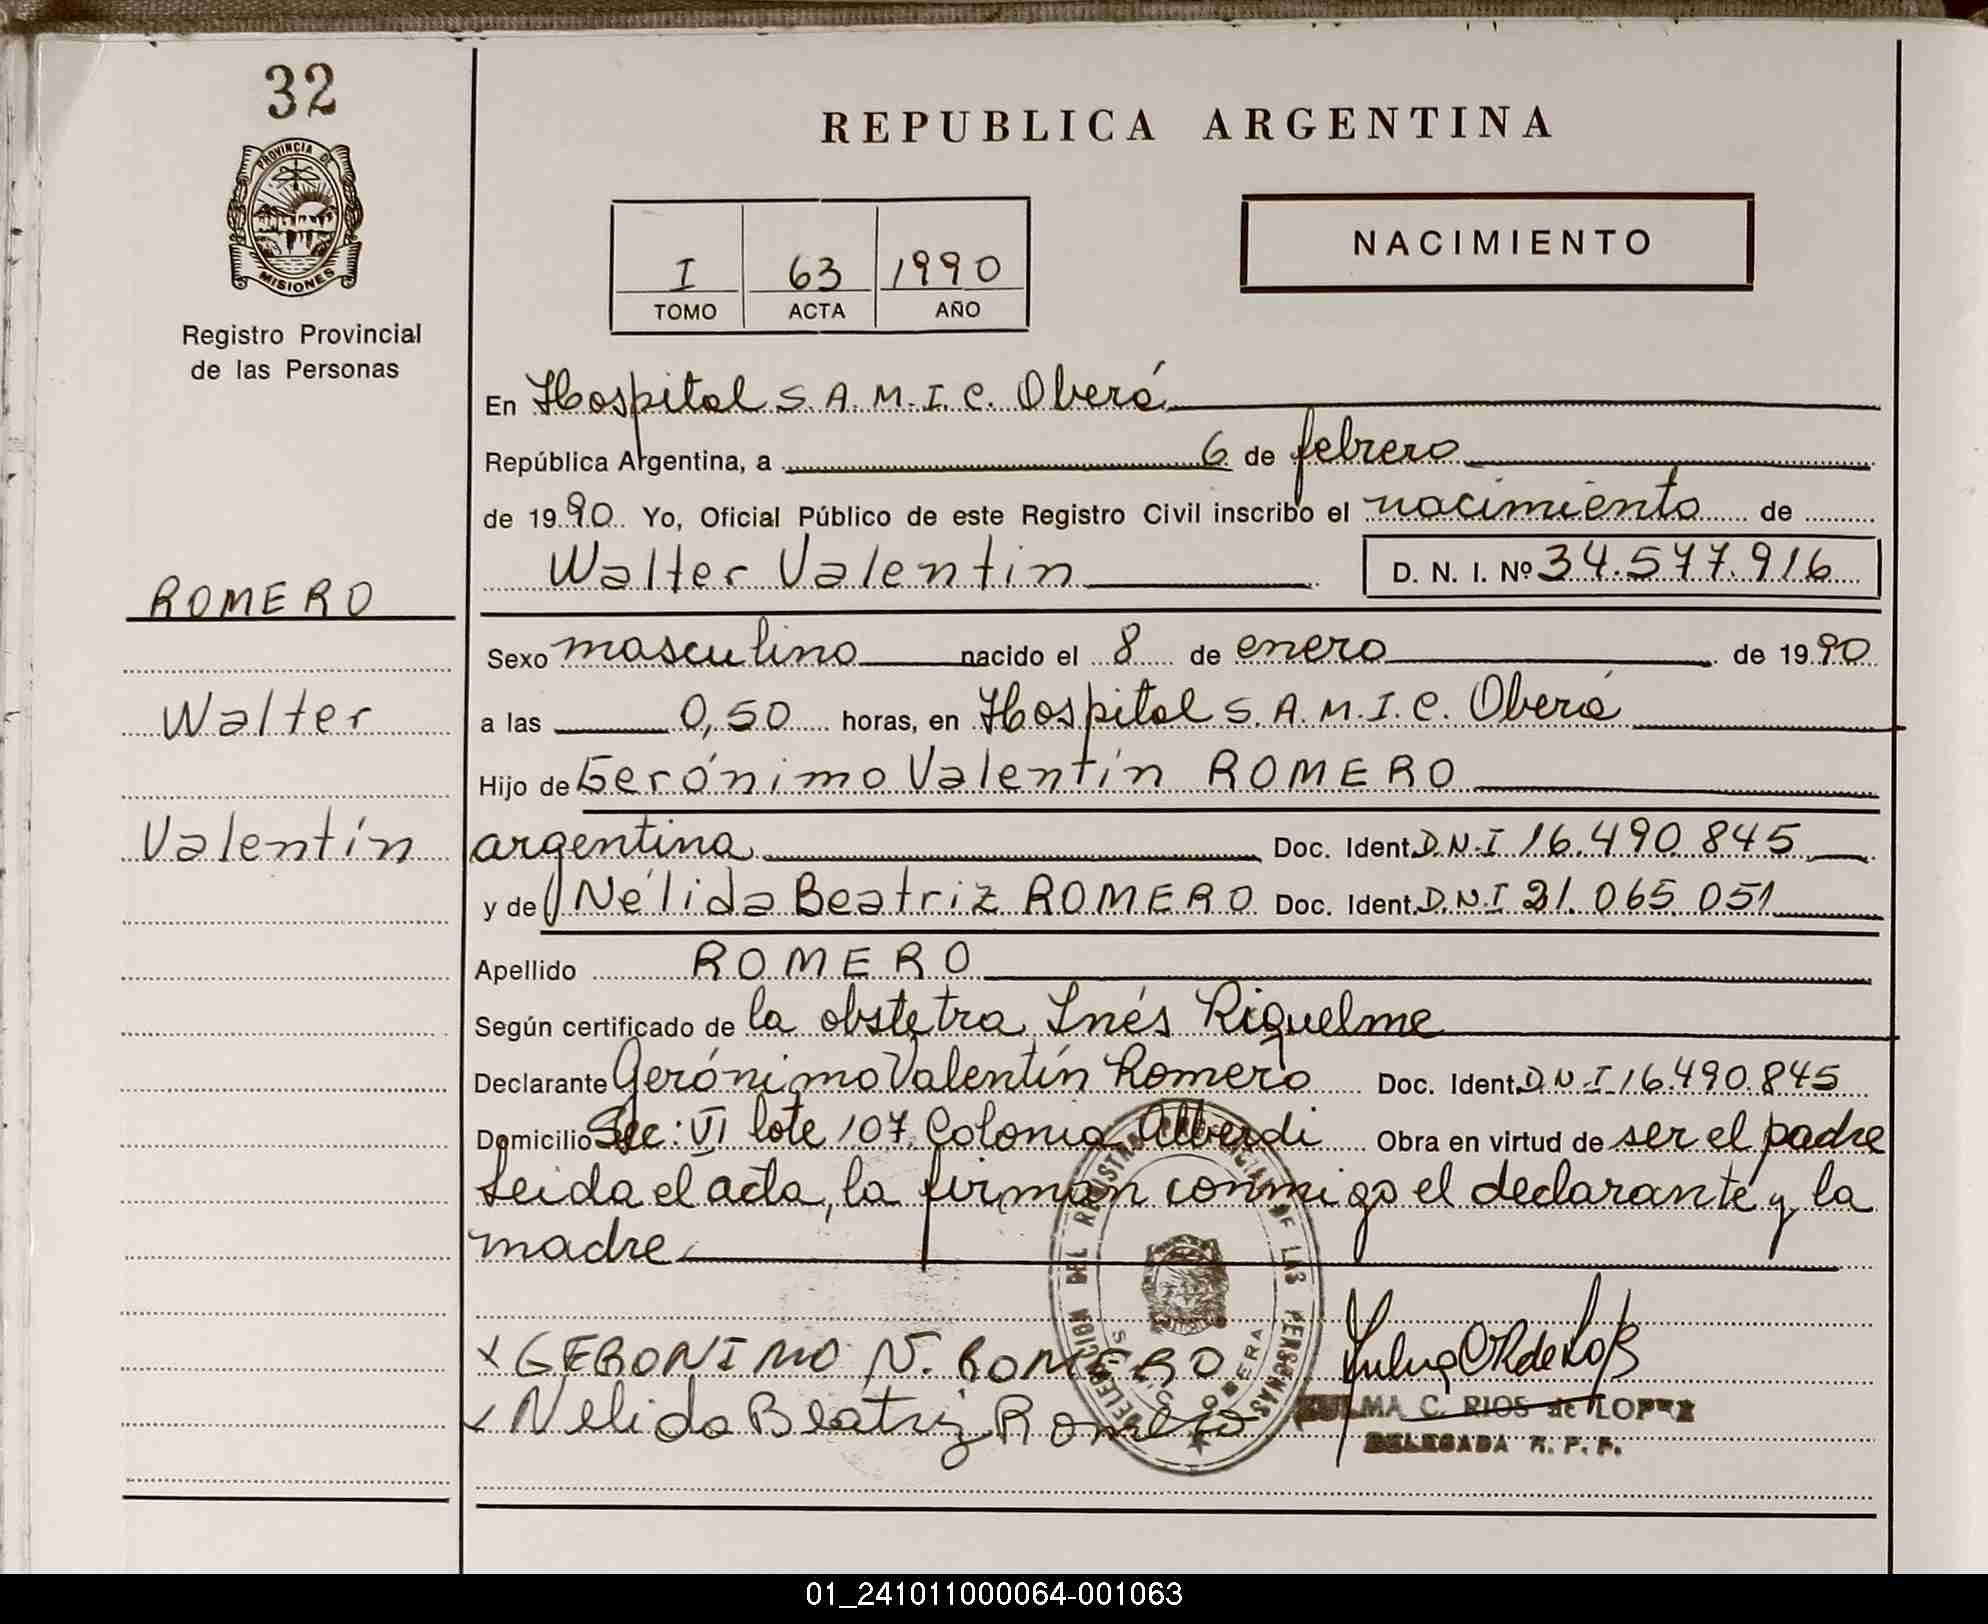 32
PROVINCIA DE
MISIONES
Registro Provincial
de las Personas
REPUBLICA ARGENTINA
I 63 1990
TOMO ACTA AÑO
NACIMIENTO
En Hospital S.A.M.I.C. Oberá
República Argentina, a 6 de febrero
de 1990 Yo, Oficial Público de este Registro Civil inscribo el nacimiento de
Walter Valentín D. N. I. Nº 34.577.916
ROMERO
Walter
Valentín
Sexo masculino nacido el 8 de enero de 1990
a las 0,50 horas, en Hospital S.A.M.I.C. Oberá
Hijo de Gerónimo Valentín ROMERO
argentina Doc. Ident. D.N.I 16.490.845
y de Nélida Beatriz ROMERO Doc. Ident. D.N.I 21.065.051
Apellido ROMERO
Según certificado de la obstetra Inés Riquelme
Declarante Gerónimo Valentín Romero Doc. Ident. D.N.I 16.490.845
Domicilio Sec: VI lote 107, Colonia Alberdi Obra en virtud de ser el padre
Leida el acta, la firman conmigo el declarante y la
madre
DELEGACION DEL REGISTRO DE LAS PERSONAS
OBERA
x GERONIMO V. ROMERO
x Nelida Beatriz Romero
ZULMA C. RIOS de LOPEZ
DELEGADA R. P. P.
01_241011000064-001063